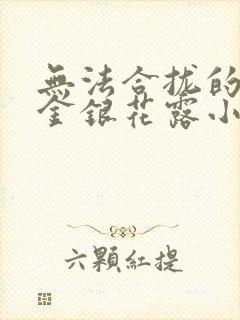 無法合拢的
金銀花露小
六顆紅提